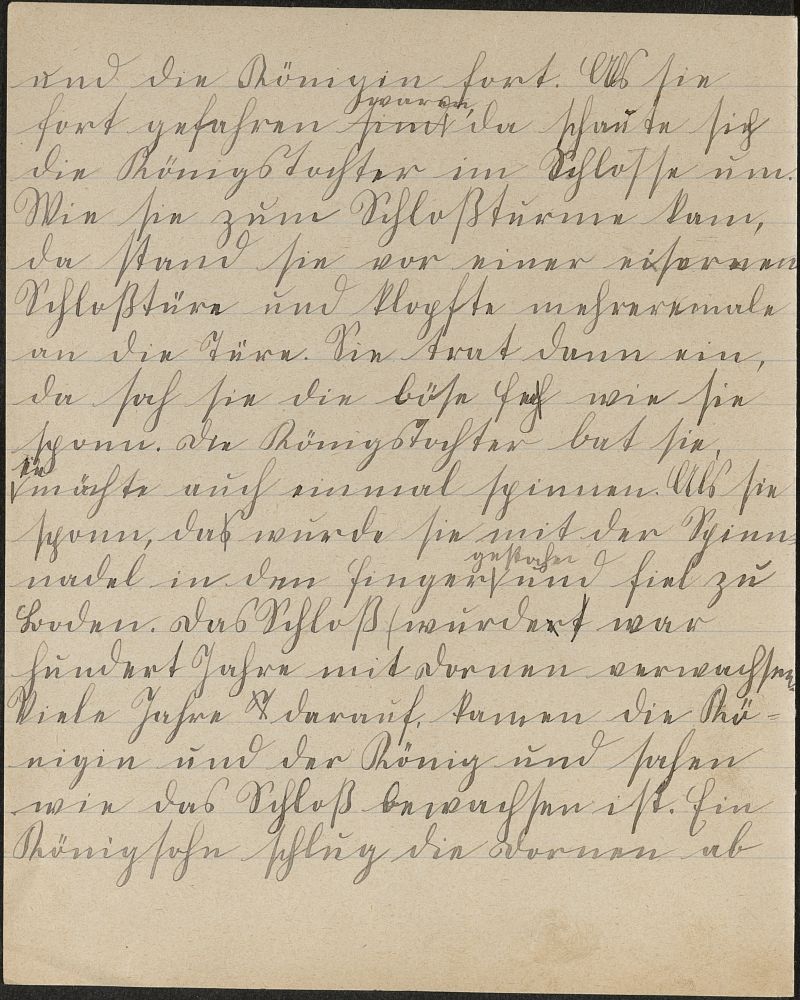 und die Königin fort. Als sie
waren,
fort gefahren sind da schaute sich
die Königstochter im Schlosse um.
Wie sie zum Schloßturme kam,
da stand sie vor einer eisernen
Schloßtüre und klopfte mehreremale
an die Türe. Sie trat dann ein,
da sah sie die böse Feh wie sie
sponn. Die Königstochter bat sie,
sie
möchte auch einmal spinnen. Als sie
sponn, das wurde sie mit der Spinn-
gestochen
nadel in den Finger und fiel zu
Boden. Das Schloß (wurdert war
hundert Jahre mit Dornen verwachsen.
Viele Jahre darauf, kamen die Kö-
nigin und der König und sahen
wie das Schloß bewachsen ist. Ein
Königsohn schlug die Dornen ab